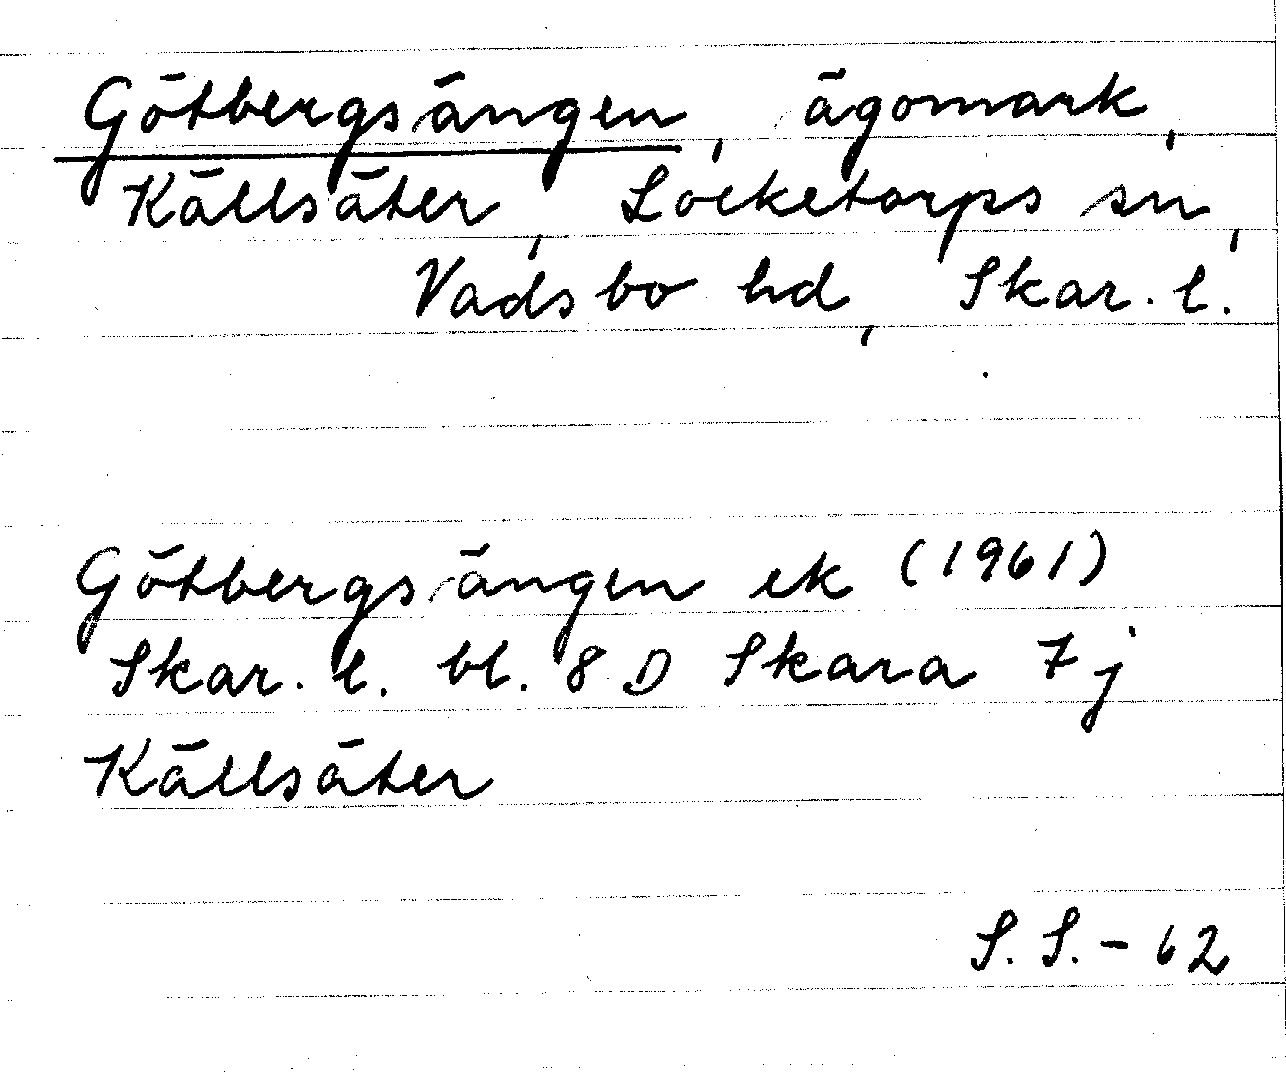 Götbergsängen, ägomark,
Källsäter, Locketorps sn,
Vadsbo hd, Skar. l.
Götbergsängen ek (1961)
Skar. l. bl. 8 D Skara 7 j
Källsäter
S. S. - 62